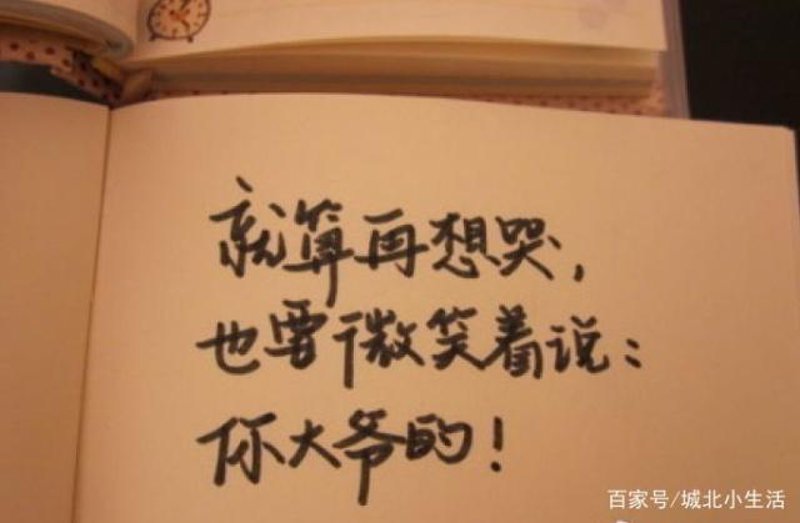 就算再想哭，
也要微笑着说：
你大爷的！
百家号/城北小生活